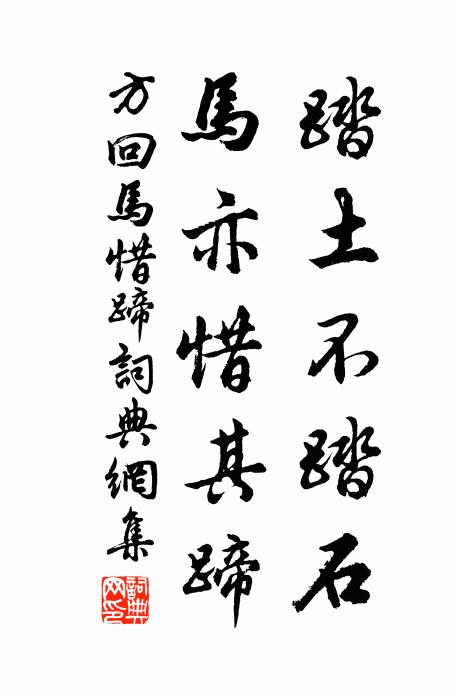 踏土不踏石
馬亦惜其蹄
方回馬惜蹄詞典網集
詞典網印